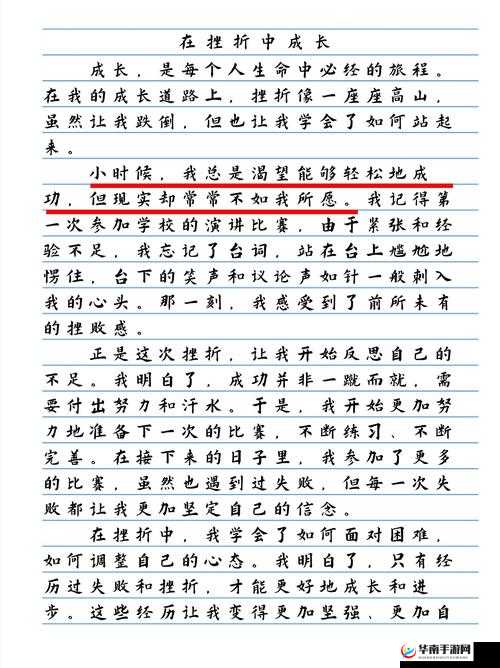 在挫折中成长
成长，是每个人生命中必经的旅程。
在我的成长道路上，挫折像一座座高山，
虽然让我跌倒，但也让我学会了如何站起
来。
小时候，我总是渴望能够轻松地成
功，但现实却常常不如我所愿。我记得第
一次参加学校的演讲比赛，由于紧张和经
验不足，我忘记了台词，站在台上尴尬地
愣住，台下的笑声和议论声如针一般刺入
我的心头。那一刻，我感受到了前所未有
的挫败感。
正是这次挫折，让我开始反思自己的
不足。我明白了，成功并非一蹴而就，需
要付出努力和汗水。于是，我开始更加努
力地准备下一次的比赛，不断练习、不断
完善。在接下来的日子里，我参加了更多
的比赛，虽然也遇到过失败，但每一次失
败都让我更加坚定自己的信念。
在挫折中，我学会了如何面对困难，
如何调整自己的心态。我明白了，只有经
历过失败和挫折，才能更好地成长和进
步。这些经历让我变得更加坚强、更加自
华南手游网